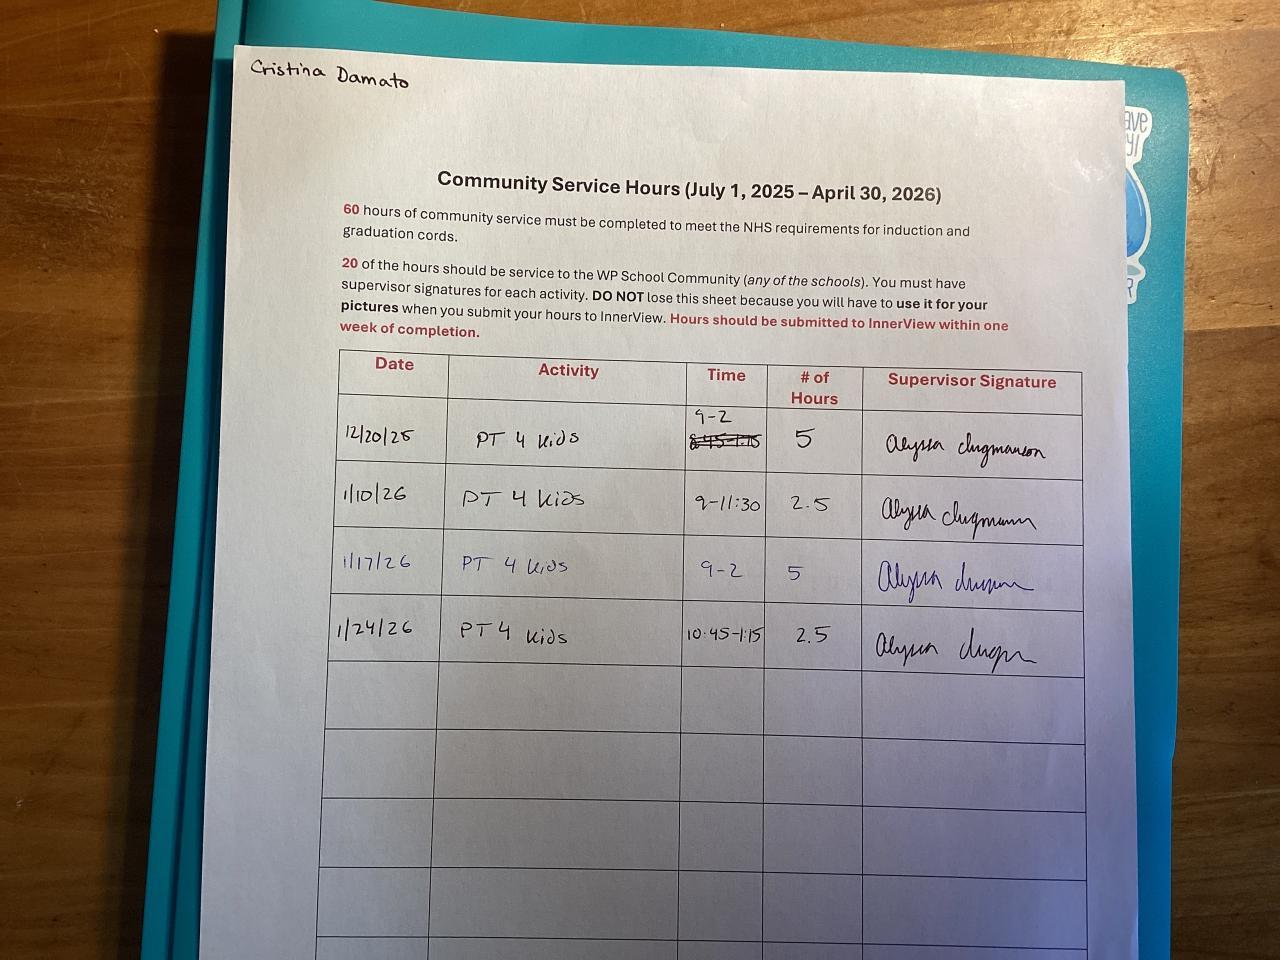 Cristina Damato
Community Service Hours (July 1, 2025 – April 30, 2026)
60 hours of community service must be completed to meet the NHS requirements for induction and
graduation cords.
20 of the hours should be service to the WP School Community (any of the schools). You must have
supervisor signatures for each activity. DO NOT lose this sheet because you will have to use it for your
pictures when you submit your hours to InnerView. Hours should be submitted to InnerView within one
week of completion.
Date Activity Time # of Hours Supervisor Signature
12/20/25 PT 4 Kids 9-2 8:45-1:15 5 Alyssa
1/10/26 PT 4 Kids 9-11:30 2.5 Alyssa
1/17/26 PT 4 Kids 9-2 5 Alyssa
1/24/26 PT 4 Kids 10:45-1:15 2.5 Alyssa